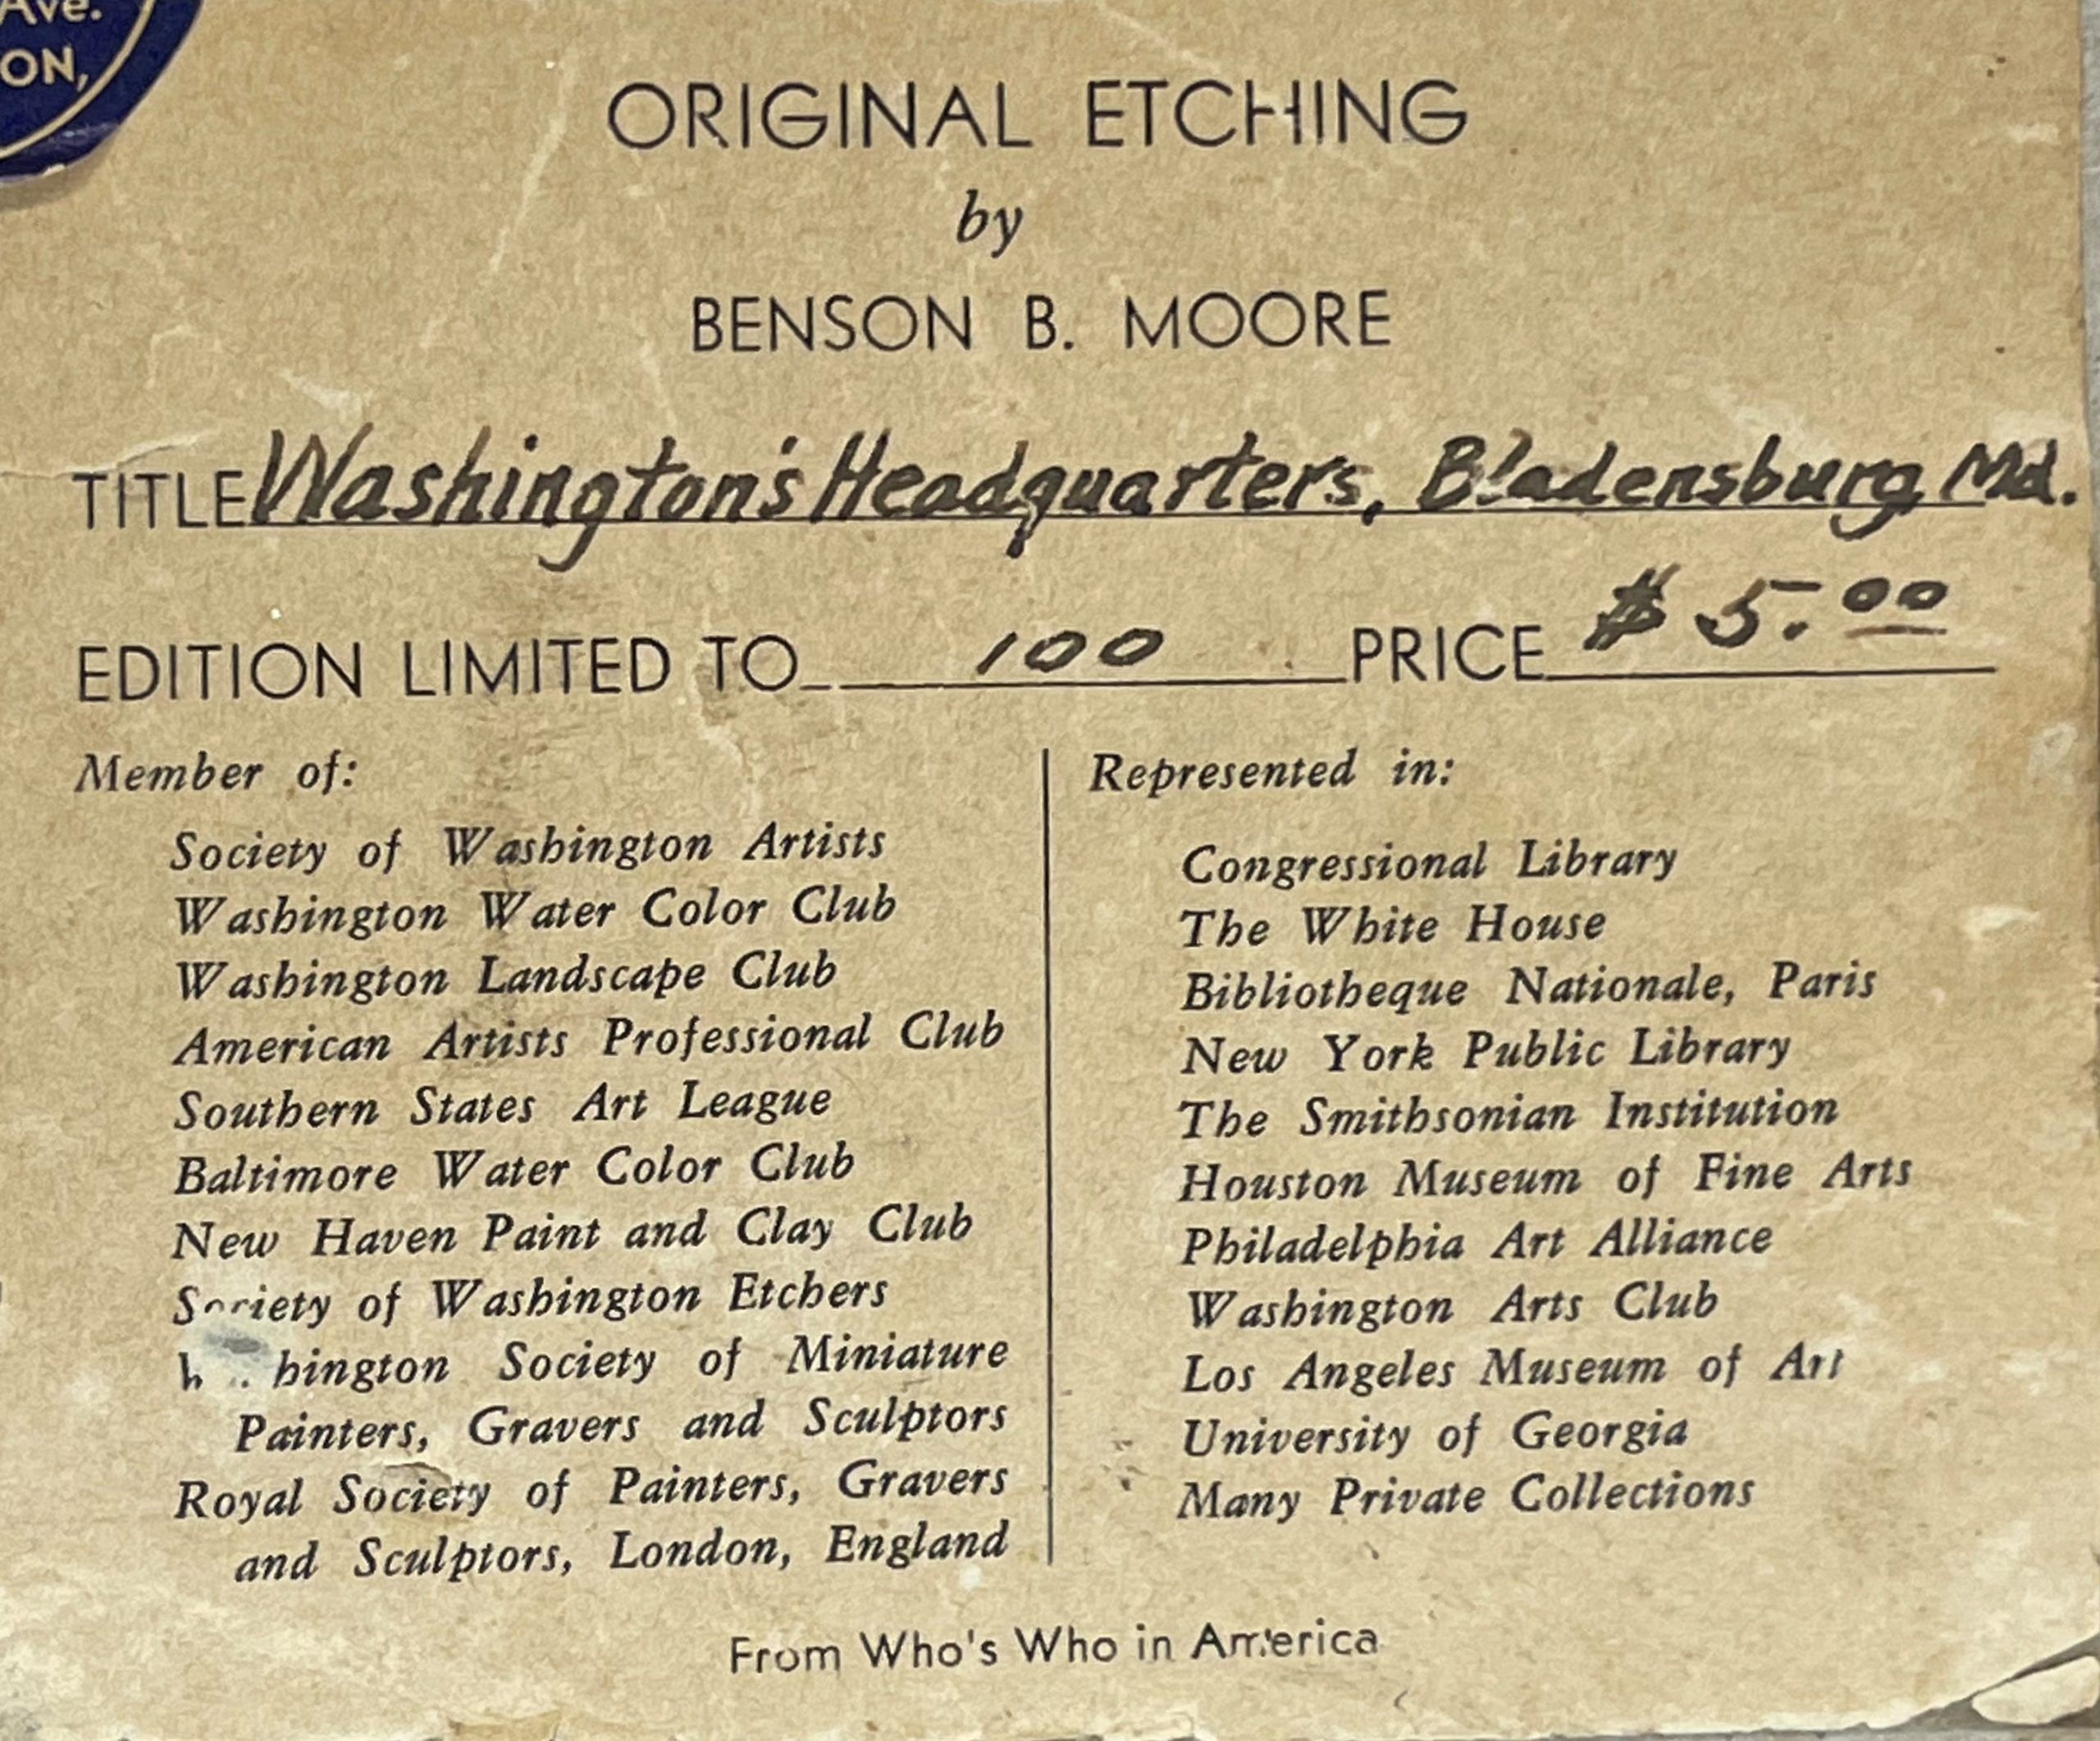 Ave.
ON,
ORIGINAL ETCHING
by
BENSON B. MOORE
TITLE Washington's Headquarters, Bladensburg Md.
EDITION LIMITED TO 100 PRICE $ 5.00
Member of:
Society of Washington Artists
Washington Water Color Club
Washington Landscape Club
American Artists Professional Club
Southern States Art League
Baltimore Water Color Club
New Haven Paint and Clay Club
Society of Washington Etchers
Washington Society of Miniature
Painters, Gravers and Sculptors
Royal Society of Painters, Gravers
and Sculptors, London, England
Represented in:
Congressional Library
The White House
Bibliotheque Nationale, Paris
New York Public Library
The Smithsonian Institution
Houston Museum of Fine Arts
Philadelphia Art Alliance
Washington Arts Club
Los Angeles Museum of Art
University of Georgia
Many Private Collections
From Who's Who in America